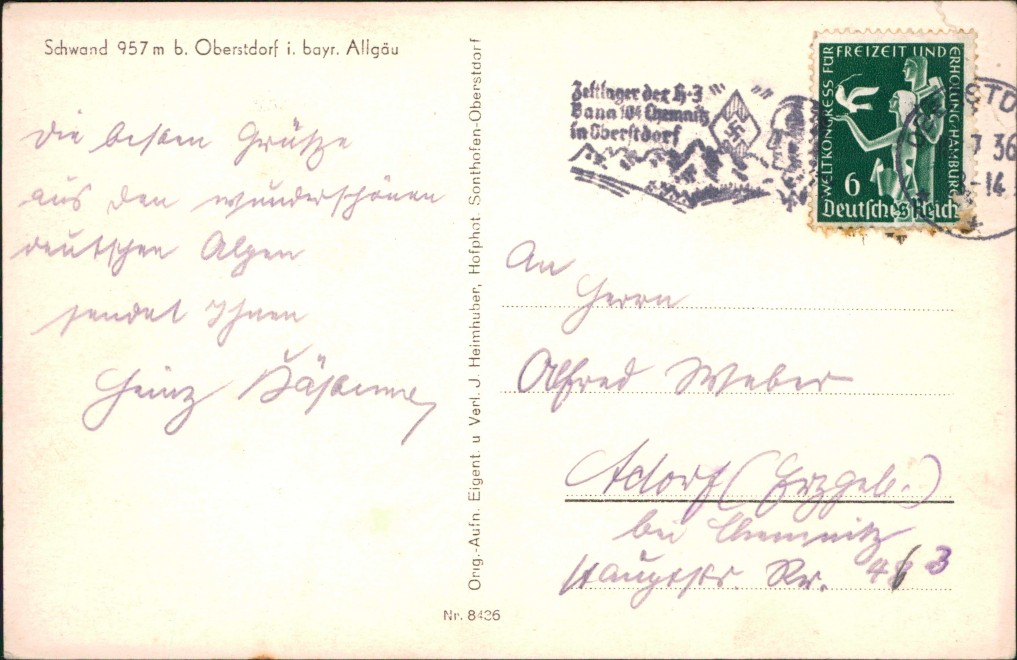 Schwand 957 m b. Oberstdorf i. bayr. Allgäu
Die besten Grüße
aus den wunderschönen
deutschen Alpen
sendet Ihnen
Heinz
Orig.-Aufn. Eigent. u Verl. J. Heimhuber, Hofphot Sonthofen-Oberstdorf
Nr. 8426
Zeltlager der H-J
Bann 104 Chemnitz
in Oberstdorf
WELTKONGRESS FÜR FREIZEIT UND ERHOLUNG·HAMBURG
6
Deutsches Reich
7 36
-14
An
Herrn
Alfred Weber
Adorf (Erzgeb.)
bei Chemnitz
Hauptstr. Nr.